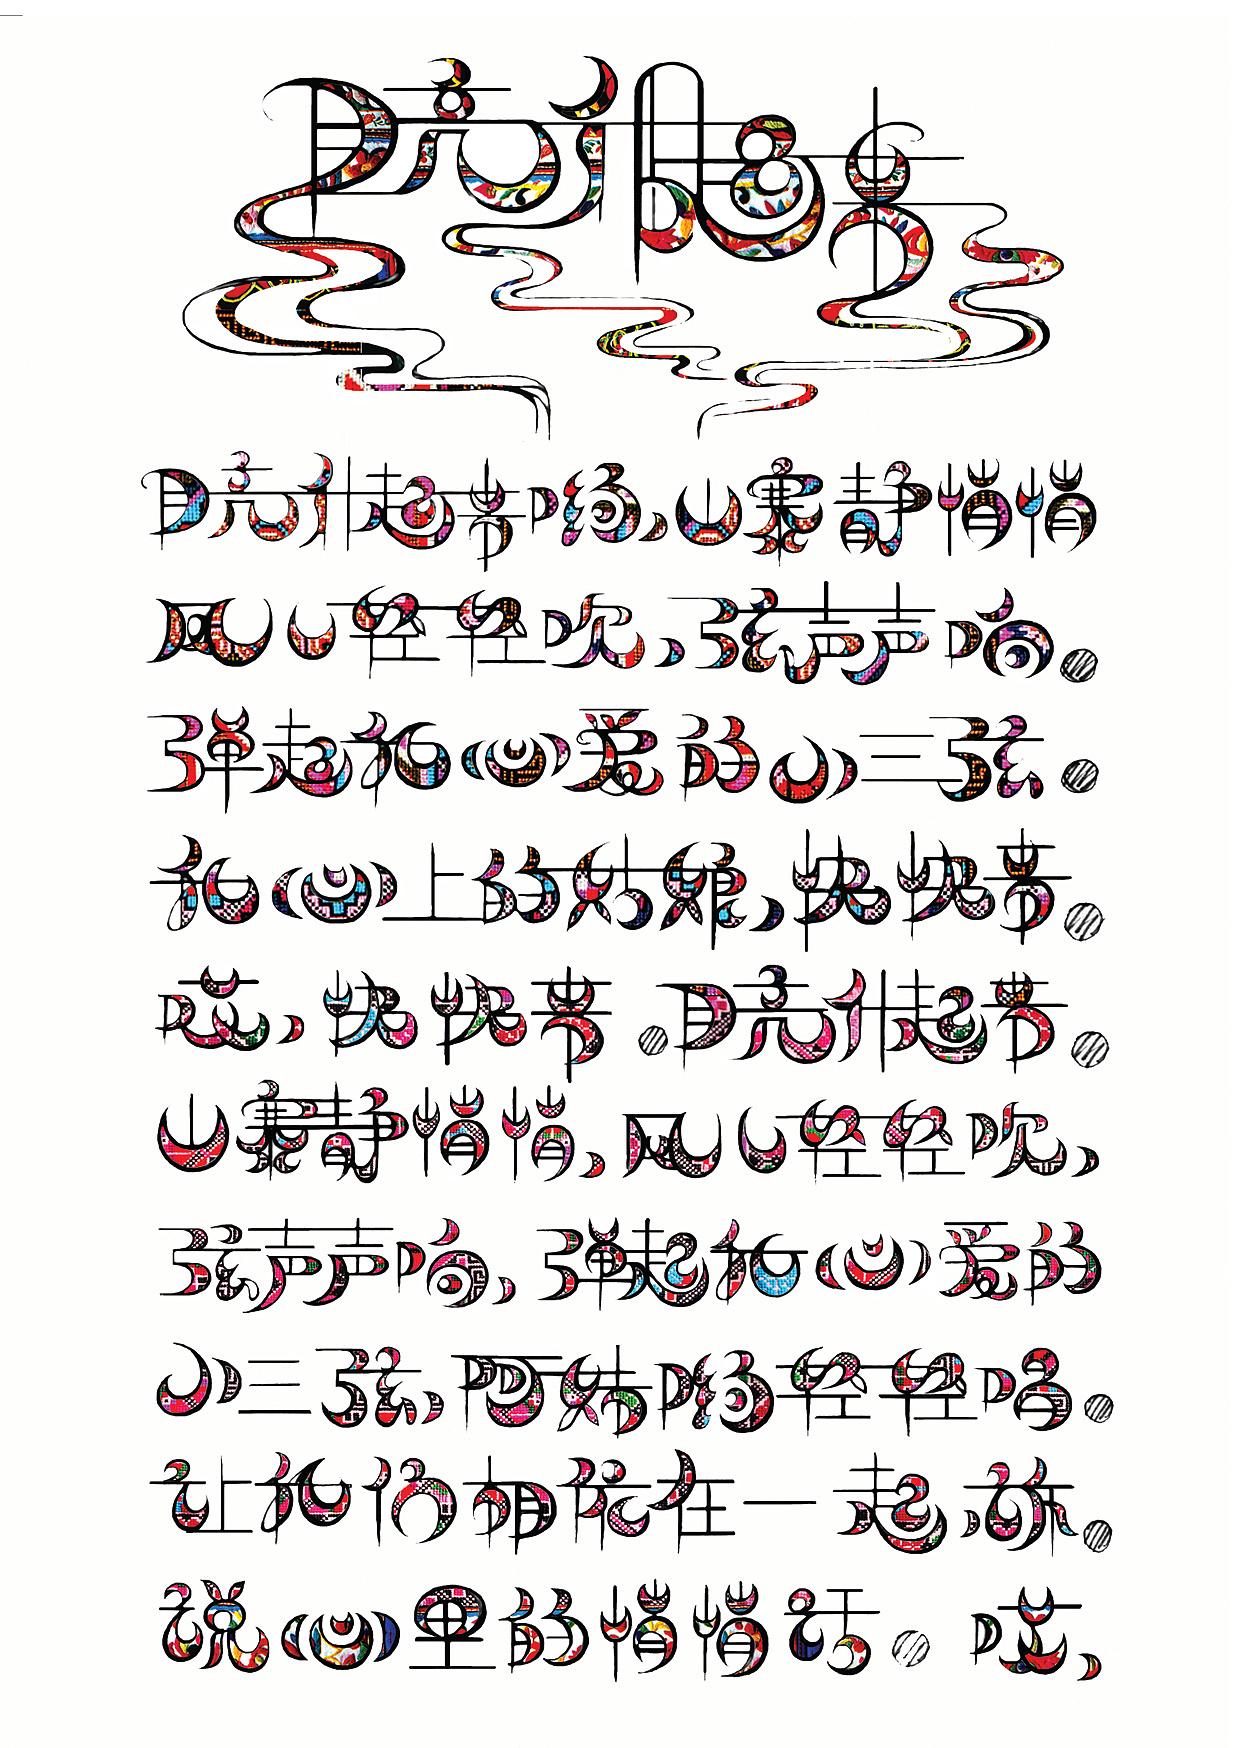 月亮升起来
月亮升起来哟,山寨静悄悄
风儿轻轻吹,弦声声响。
弹起我心爱的小三弦。
我心上的姑娘,快快来。
哎,快快来。月亮升起来。
山寨静悄悄,风儿轻轻吹,
弦声声响,弹起我心爱的
小三弦,阿妹哟轻轻唱。
让我们相依在一起,
说心里的悄悄话。哎,